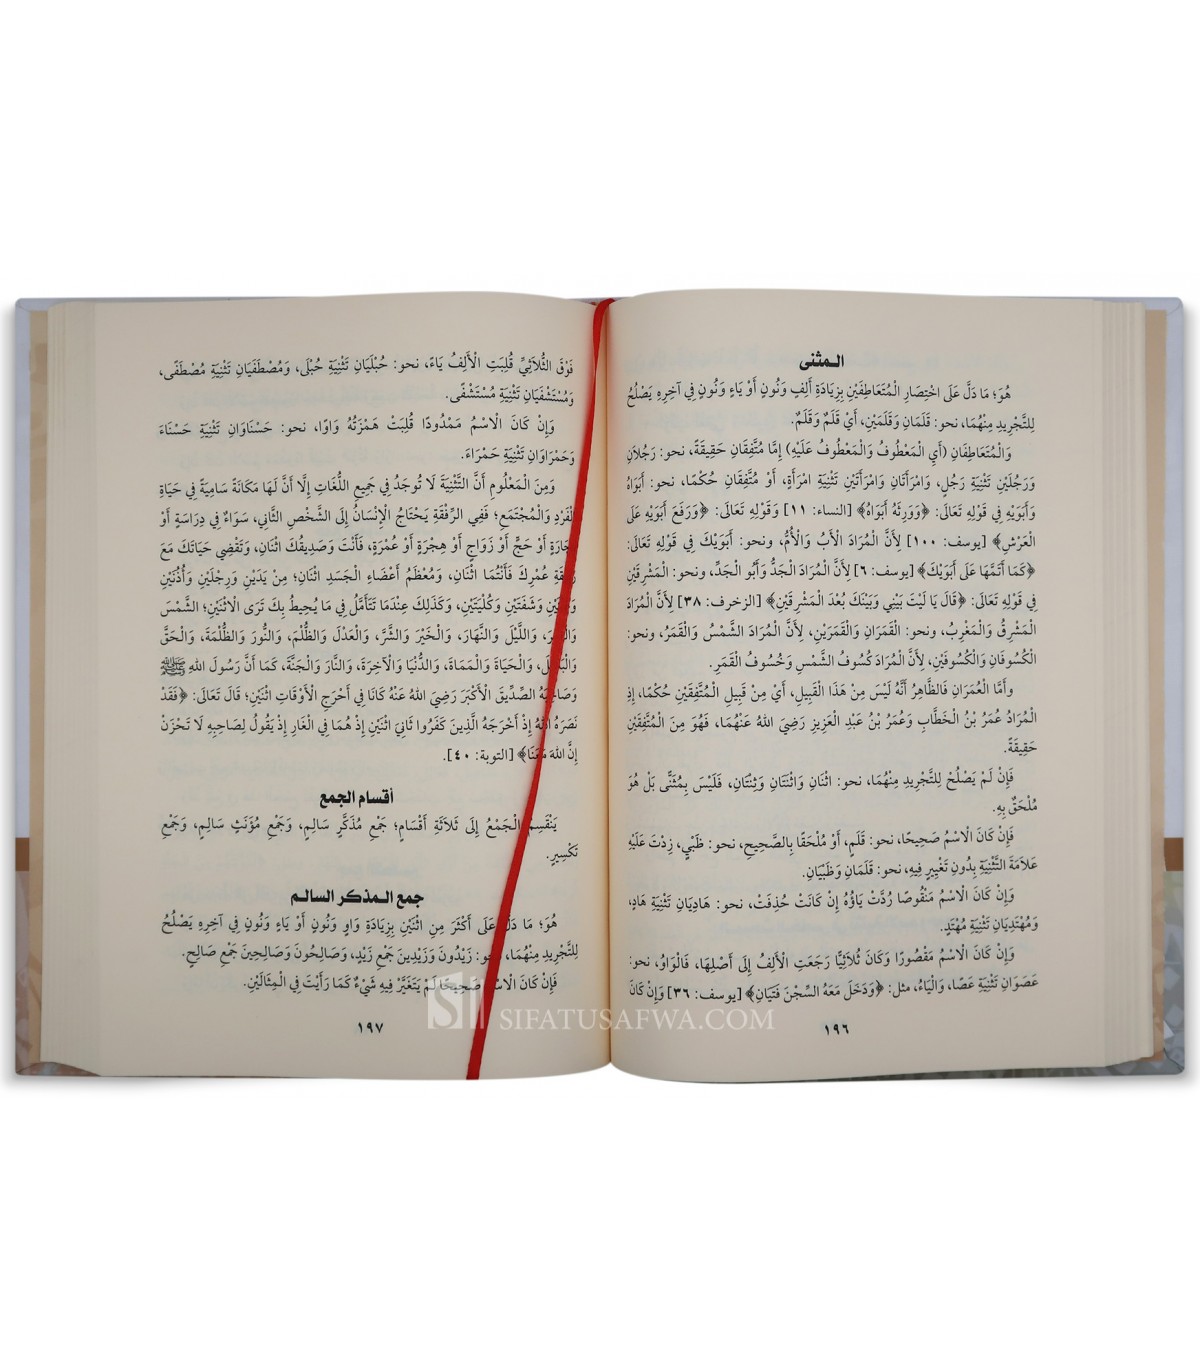 المثنى
هُوَ؛ مَا دَلَّ عَلَى اخْتِصَارِ الْمُتَعَاطِفَيْنِ بِزِيَادَةِ أَلِفٍ وَنُونٍ أَوْ يَاءٍ وَنُونٍ فِي آخِرِهِ يَصْلُحُ
لِلتَّجْرِيدِ مِنْهُمَا، نحو: قَلَمَانِ وَقَلَمَيْنِ، أَيْ قَلَمٌ وَقَلَمٌ.
وَالْمُتَعَاطِفَانِ (أَيِ الْمَعْطُوفُ وَالْمَعْطُوفُ عَلَيْهِ) إِمَّا مُتَّفِقَانِ حَقِيقَةً، نحو: رَجُلَانِ
وَرَجُلَيْنِ تَثْنِيَةِ رَجُلٍ، وَامْرَأَتَانِ وَامْرَأَتَيْنِ تَثْنِيَةِ امْرَأَةٍ، أَوْ مُتَّفِقَانِ حُكْمًا، نحو: أَبَوَاهُ
وَأَبَوَيْهِ فِي قَوْلِهِ تَعَالَى: ﴿وَوَرِثَهُ أَبَوَاهُ﴾ [النساء: ١١] وَقَوْلِهِ تَعَالَى: ﴿وَرَفَعَ أَبَوَيْهِ عَلَى
الْعَرْشِ﴾ [يوسف: ١٠٠] لِأَنَّ الْمُرَادَ الْأَبُ وَالْأُمُّ، ونحو: أَبَوَيْكَ فِي قَوْلِهِ تَعَالَى:
﴿كَمَا أَتَمَّهَا عَلَى أَبَوَيْكَ﴾ [يوسف: ٦] لِأَنَّ الْمُرَادَ الْجَدُّ وَأَبُو الْجَدِّ، ونحو: الْمَشْرِقَيْنِ
فِي قَوْلِهِ تَعَالَى: ﴿قَالَ يَا لَيْتَ بَيْنِي وَبَيْنَكَ بُعْدَ الْمَشْرِقَيْنِ﴾ [الزخرف: ٣٨] لِأَنَّ الْمُرَادَ
الْمَشْرِقُ وَالْمَغْرِبُ، ونحو: الْقَمَرَانِ وَالْقَمَرَيْنِ، لِأَنَّ الْمُرَادَ الشَّمْسُ وَالْقَمَرُ، ونحو:
الْكُسُوفَانِ وَالْكُسُوفَيْنِ، لِأَنَّ الْمُرَادَ كُسُوفُ الشَّمْسِ وَخُسُوفُ الْقَمَرِ.
وأَمَّا الْعُمَرَانِ فَالظَّاهِرُ أَنَّهُ لَيْسَ مِنْ هَذَا الْقَبِيلِ، أَيْ مِنْ قَبِيلِ الْمُتَّفِقَيْنِ حُكْمًا، إِذِ
الْمُرَادُ عُمَرُ بْنُ الْخَطَّابِ وَعُمَرُ بْنُ عَبْدِ الْعَزِيزِ رَضِيَ اللهُ عَنْهُمَا، فَهُوَ مِنَ الْمُتَّفِقَيْنِ
حَقِيقَةً.
فَإِنْ لَمْ يَصْلُحْ لِلتَّجْرِيدِ مِنْهُمَا، نحو: اثْنَانِ وَاثْنَتَانِ وَثِنْتَانِ، فَلَيْسَ بِمُثَنًّى بَلْ هُوَ
مُلْحَقٌ بِهِ.
فَإِنْ كَانَ الْاسْمُ صَحِيحًا، نحو: قَلَمٍ، أَوْ مُلْحَقًا بِالصَّحِيحِ، نحو: ظَبْيٍ، زِدْتَ عَلَيْهِ
عَلَامَةَ التَّثْنِيَةِ بِدُونِ تَغْيِيرٍ فِيهِ، نحو: قَلَمَانِ وَظَبْيَانِ.
وَإِنْ كَانَ الْاسْمُ مَنْقُوصًا رُدَّتْ يَاؤُهُ إِنْ كَانَتْ حُذِفَتْ، نحو: هَادِيَانِ تَثْنِيَةِ هَادٍ،
وَمُهْتَدِيَانِ تَثْنِيَةِ مُهْتَدٍ.
وَإِنْ كَانَ الْاسْمُ مَقْصُورًا وَكَانَ ثُلَاثِيًّا رَجَعَتِ الْأَلِفُ إِلَى أَصْلِهَا، فَالْوَاوُ، نحو:
عَصَوَانِ تَثْنِيَةِ عَصًا، وَالْيَاءُ، مثل: ﴿وَدَخَلَ مَعَهُ السِّجْنَ فَتَيَانِ﴾ [يوسف: ٣٦] وَإِنْ كَانَ
١٩٦
فَوْقَ الثُّلَاثِيِّ قُلِبَتِ الْأَلِفُ يَاءً، نحو: حُبْلَيَانِ تَثْنِيَةِ حُبْلَى، وَمُصْطَفَيَانِ تَثْنِيَةِ مُصْطَفًى،
وَمُسْتَشْفَيَانِ تَثْنِيَةِ مُسْتَشْفًى.
وَإِنْ كَانَ الْاسْمُ مَمْدُودًا قُلِبَتْ هَمْزَتُهُ وَاوًا، نحو: حَسْنَاوَانِ تَثْنِيَةِ حَسْنَاءَ
وَحَمْرَاوَانِ تَثْنِيَةِ حَمْرَاءَ.
وَمِنَ الْمَعْلُومِ أَنَّ التَّثْنِيَةَ لَا تُوجَدُ فِي جَمِيعِ اللُّغَاتِ إِلَّا أَنَّ لَهَا مَكَانَةً سَامِيَةً فِي حَيَاةِ
الْفَرْدِ وَالْمُجْتَمَعِ؛ فَفِي الرِّفْقَةِ يَحْتَاجُ الْإِنْسَانُ إِلَى الشَّخْصِ الثَّانِي، سَوَاءٌ فِي دِرَاسَةٍ أَوْ
تِجَارَةٍ أَوْ حَجٍّ أَوْ زَوَاجٍ أَوْ هِجْرَةٍ أَوْ عُمْرَةٍ، فَأَنْتَ وَصَدِيقُكَ اثْنَانِ، وَتَقْضِي حَيَاتَكَ مَعَ
رَفِيقَةِ عُمْرِكَ فَأَنْتُمَا اثْنَانِ، وَمُعْظَمُ أَعْضَاءِ الْجَسَدِ اثْنَانِ؛ مِنْ يَدَيْنِ وَرِجْلَيْنِ وَأُذُنَيْنِ
وَعَيْنَيْنِ وَشَفَتَيْنِ وَكُلْيَتَيْنِ، وَكَذَلِكَ عِنْدَمَا تَتَأَمَّلُ فِي مَا يُحِيطُ بِكَ تَرَى الْاثْنَيْنِ؛ الشَّمْسَ
وَالْقَمَرَ، وَاللَّيْلَ وَالنَّهَارَ، وَالْخَيْرَ وَالشَّرَّ، وَالْعَدْلَ وَالظُّلْمَ، وَالنُّورَ وَالظُّلْمَةَ، وَالْحَقَّ
وَالْبَاطِلَ، وَالْحَيَاةَ وَالْمَمَاةَ، وَالدُّنْيَا وَالْآخِرَةَ، وَالنَّارَ وَالْجَنَّةَ، كَمَا أَنَّ رَسُولَ اللهِ ﷺ
وَصَاحِبَهُ الصِّدِّيقَ الْأَكْبَرَ رَضِيَ اللهُ عَنْهُ كَانَا فِي أَحْرَجِ الْأَوْقَاتِ اثْنَيْنِ؛ قَالَ تَعَالَى: ﴿فَقَدْ
نَصَرَهُ اللهُ إِذْ أَخْرَجَهُ الَّذِينَ كَفَرُوا ثَانِيَ اثْنَيْنِ إِذْ هُمَا فِي الْغَارِ إِذْ يَقُولُ لِصَاحِبِهِ لَا تَحْزَنْ
إِنَّ اللهَ مَعَنَا﴾ [التوبة: ٤٠].
أقسام الجمع
يَنْقَسِمُ الْجَمْعُ إِلَى ثَلَاثَةِ أَقْسَامٍ؛ جَمْعِ مُذَكَّرٍ سَالِمٍ، وَجَمْعِ مُؤَنَّثٍ سَالِمٍ، وَجَمْعِ
تَكْسِيرٍ.
جمع المذكر السالم
هُوَ؛ مَا دَلَّ عَلَى أَكْثَرَ مِنِ اثْنَيْنِ بِزِيَادَةِ وَاوٍ وَنُونٍ أَوْ يَاءٍ وَنُونٍ فِي آخِرِهِ يَصْلُحُ
لِلتَّجْرِيدِ مِنْهُمَا، نحو: زَيْدُونَ وَزَيْدِينَ جَمْعِ زَيْدٍ، وَصَالِحُونَ وَصَالِحِينَ جَمْعِ صَالِحٍ.
فَإِنْ كَانَ الْاسْمُ صَحِيحًا لَمْ يَتَغَيَّرْ فِيهِ شَيْءٌ كَمَا رَأَيْتَ فِي الْمِثَالَيْنِ.
١٩٧
SIFATUSAFWA.COM